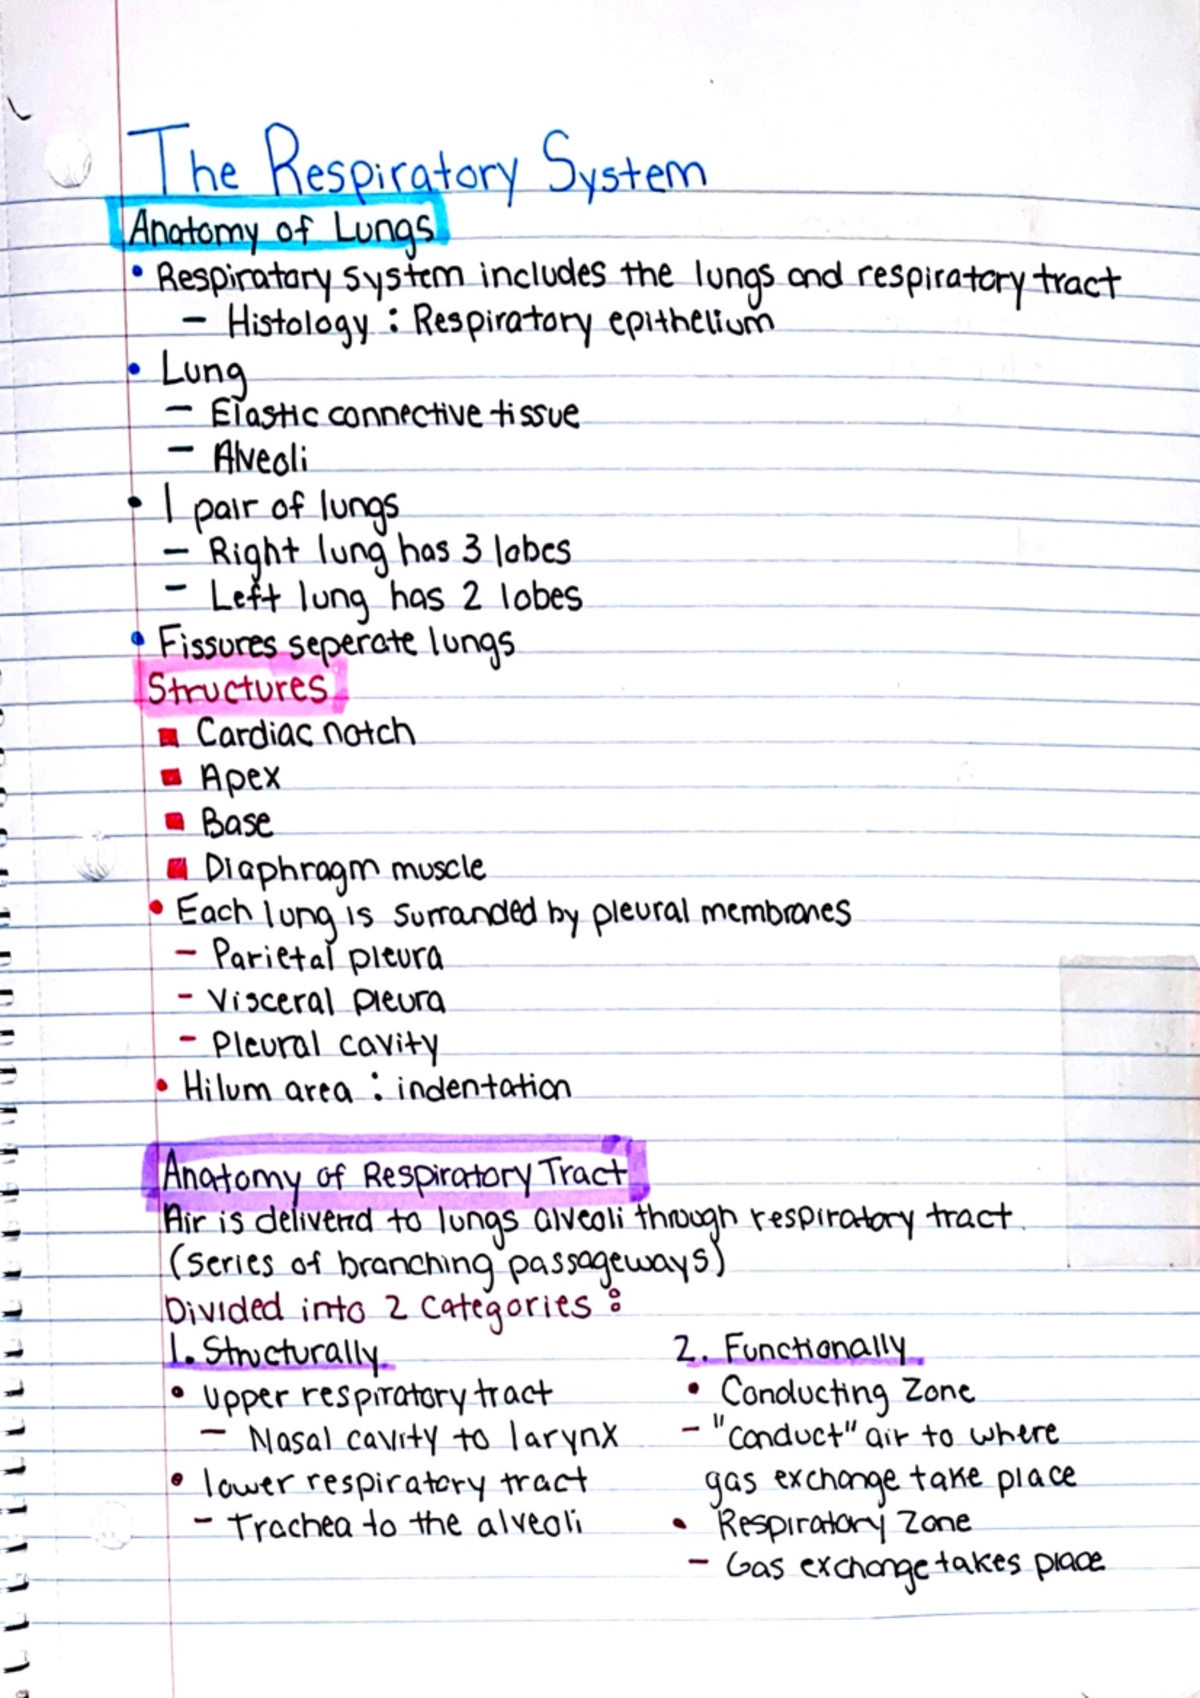 The Respiratory System
Anatomy of Lungs
• Respiratory system includes the lungs and respiratory tract
– Histology : Respiratory epithelium
• Lung
– Elastic connective tissue
– Alveoli
• 1 pair of lungs
– Right lung has 3 lobes
– Left lung has 2 lobes
• Fissures seperate lungs
Structures
▪ Cardiac notch
▪ Apex
▪ Base
▪ Diaphragm muscle
• Each lung is surranded by pleural membranes
– Parietal pleura
– Visceral pleura
– Pleural cavity
• Hilum area : indentation
Anatomy of Respiratory Tract
Air is delivered to lungs alveoli through respiratory tract.
(series of branching passageways)
Divided into 2 categories :
1. Structurally
• Upper respiratory tract
– Nasal cavity to larynx
• lower respiratory tract
– Trachea to the alveoli
2. Functionally
• Conducting Zone
– "conduct" air to where
gas exchange take place
• Respiratory Zone
– Gas exchange takes place